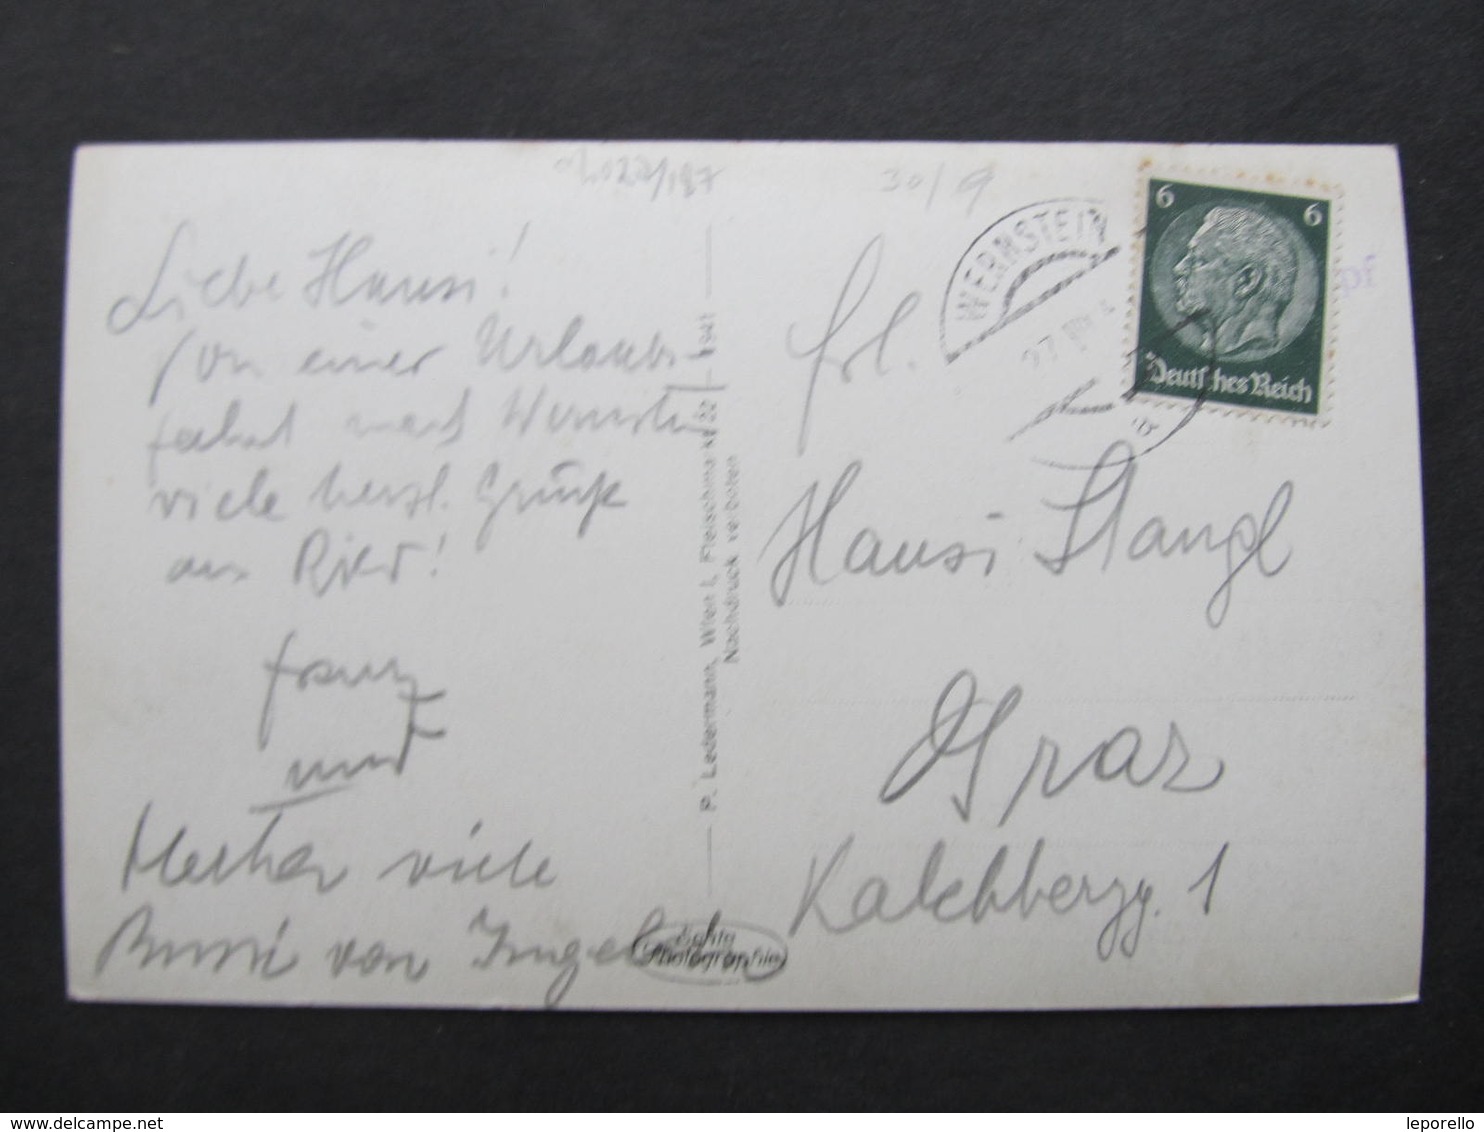 30/9
Liebe Hansi!
Von einer Urlaubs-
fahrt nach Wernstein
viele herzl. Grüße
aus Ried!
Franz
und
viele
Bussi von Ingeb
P. Ledermann, Wien I, Fleischmarkt 22 — 1941
Nachdruck verboten
Echte
Photographie
WERNSTEIN
27. VIII.
a
6 6
Deutsches Reich
pf
Frl.
Hansi Stangl
Graz
Kalchbergg. 1
www.delcampe.net
leporello